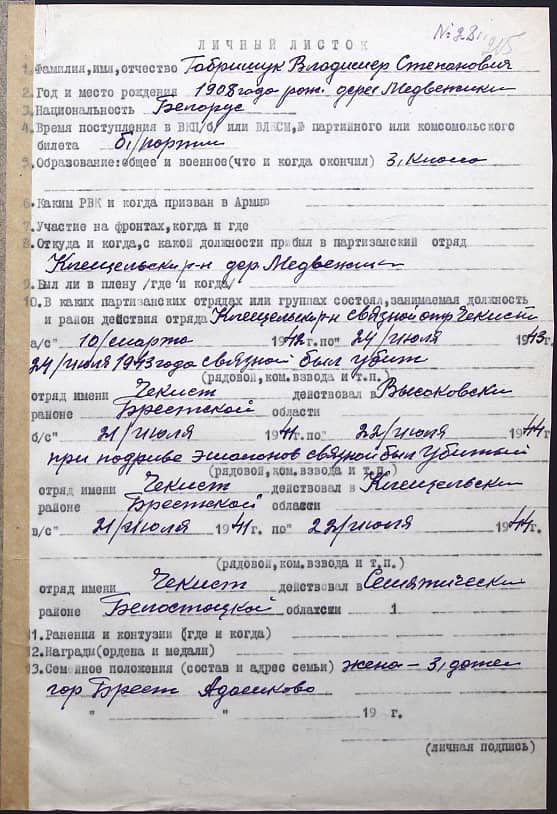 №28
215
ЛИЧНЫЙ ЛИСТОК
1.Фамилия,имя,отчество Габришук Владимер Степанович
2.Год и место рождения 1908 года рож. дере Медвежики
3.Национальность Белорус
4.Время поступления в ВКП/б/ или ВЛКСМ, № партийного или комсомольского
билета б/партии
5.Образование:общее и военное(что и когда окончил) 3, класса
6.Каким РВК и когда призван в Армию
7.Участие на фронтах,когда и где
8.Откуда и когда,с какой должности прибыл в партизанский отряд
Клещельски р-н дер. Медвежики
9.Был ли в плену /где и когда/
10.В каких партизанских отрядах или группах состоял,занимаемая должность
и район действия отряда Клещельски р-н связной отр Чекист
а/с" 10/марта 1942 г.по" 24/июля 1943г.
24/июля 1943 года связной был убит
(рядовой,ком.взвода и т.п.)
отряд имени Чекист действовал в Высоковски
районе Брестской области
б/с" 21/июля 1941 г.по" 22/июля 1944
при подриве эшалонов связной был убитый
(рядовой,ком.взвода и т.п.)
отряд имени Чекист действовал в Клещельски
районе Брестской области
в/с" 21/июля 1941 г. по" 22/июля 1944 г.
(рядовой,ком.взвода и т.п.)
отряд имени Чекист действовал в Семятически
районе Белостоцкой облатсии 1
11.Ранения и контузии (где и когда)
12.Награды(ордена и медали)
13.Семейное положения (состав и адрес семьи) жена – 3, детей
гор Брест
" " 19 г.
(личная подпись)